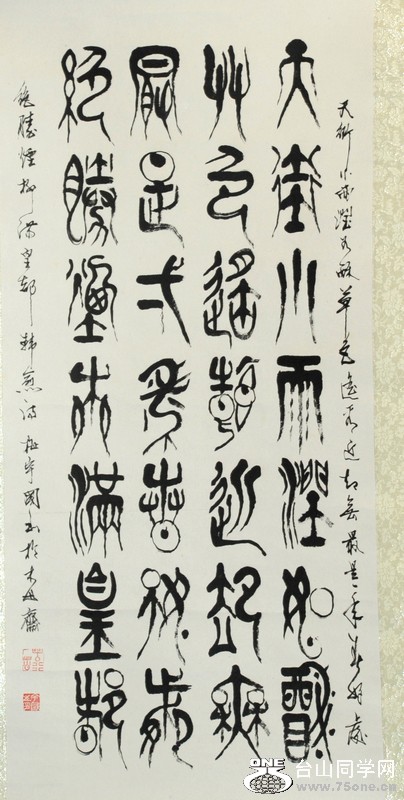 天街小雨潤如酥草色遙看近卻無最是一年春好處
天街小雨潤如酥
艸色遙看近卻無
最是弌年春好處
絕勝煙柳滿皇都
絕勝煙柳滿皇都韓愈詩國書於齋
ONE
台山同学网
www.75one.cn